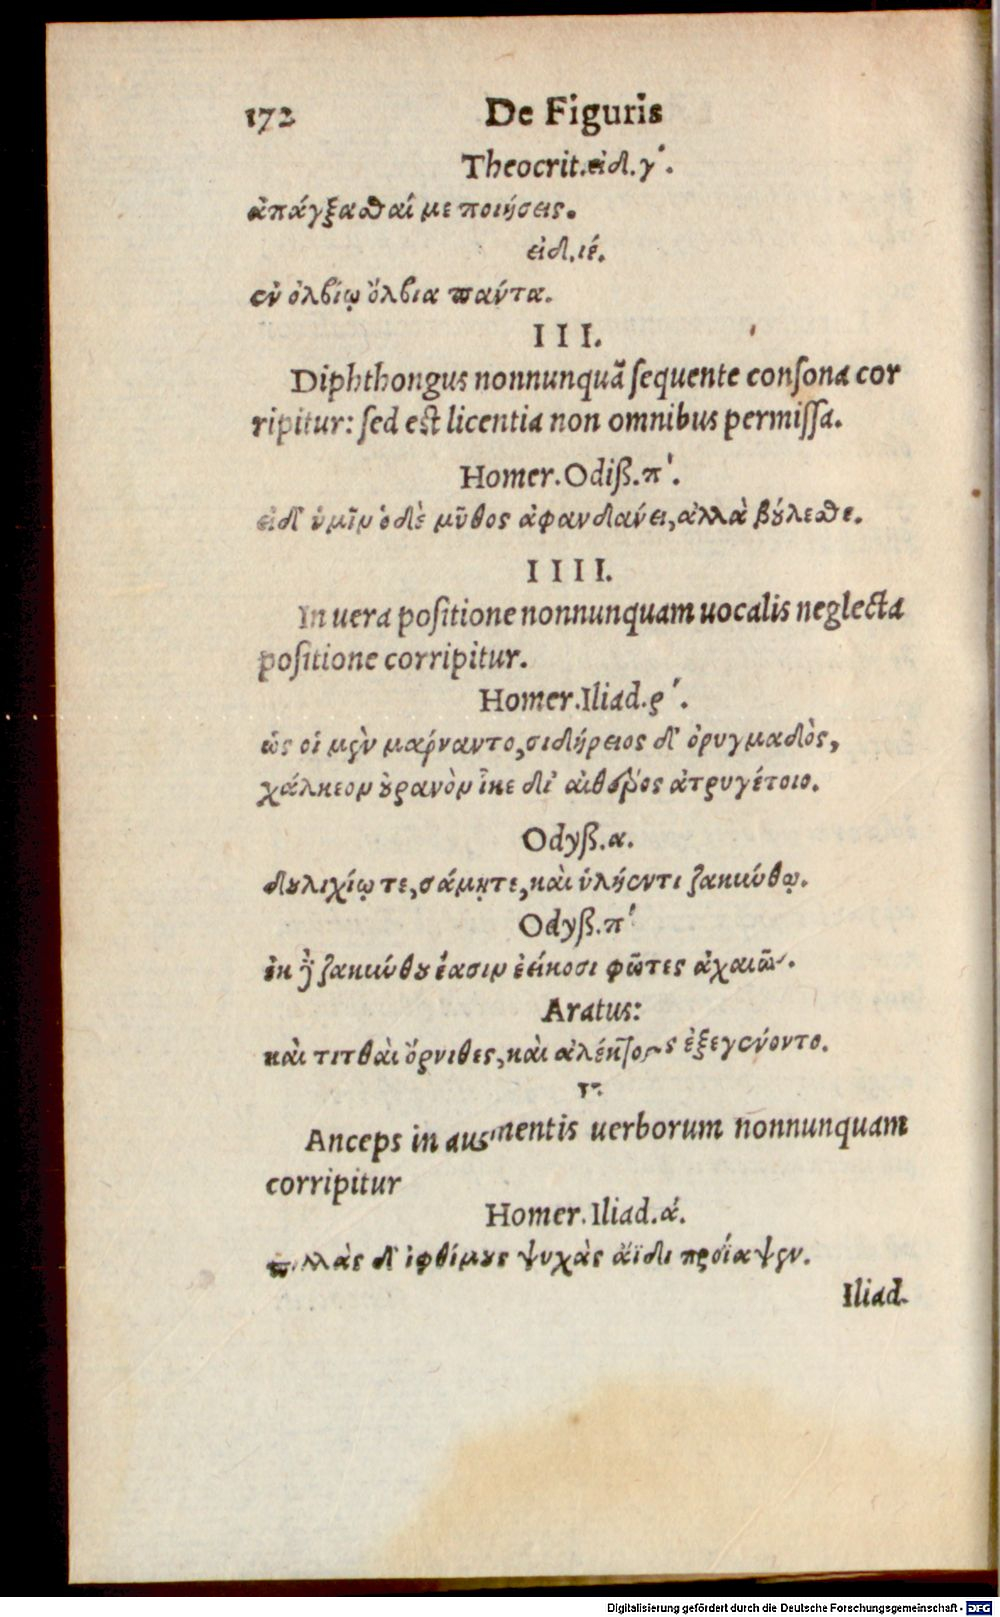 172 De Figuris
Theocrit.εἰδ.γ'.
ἀπάγξασθαί με ποιήσεις.
εἰδ.ιέ.
ἐν ὀλβίῳ ὄλβια παντα.
III.
Diphthongus nonnunquã ſequente conſona cor
ripitur: ſed eſt licentia non omnibus permiſſa.
Homer.Odiß.π'.
εἰ δ' ὑμῖν ὁ δὲ μῦθος ἀφανδάνει, ἀλλὰ βούλεσθε.
IIII.
In uera poſitione nonnunquam uocalis neglecta
poſitione corripitur.
Homer.Iliad.ρ'.
ὡς οἱ μὲν μάρναντο, σιδήρειος δ' ὀρυγμαδὸς,
χάλκεον οὐρανὸν ἷκε δι' αἰθέρος ἀτρυγέτοιο.
Odyß.α.
δουλιχίῳ τε, σάμῃ τε, καὶ ὑλήεντι ζακύνθῳ.
Odyß.π'
ἐκ δὲ ζακύνθου ἔασιν ἐείκοσι φῶτες ἀχαιῶν.
Aratus:
καὶ τιτθαὶ ὄρνιθες, καὶ ἀλέκτορες ἐξεγένοντο.
V.
Anceps in augmentis uerborum nonnunquam
corripitur
Homer.Iliad.ά.
πολλὰς δ' ἰφθίμους ψυχὰς ἄϊδι προΐαψεν.
Iliad.
Digitalisierung gefördert durch die Deutsche Forschungsgemeinschaft - DFG